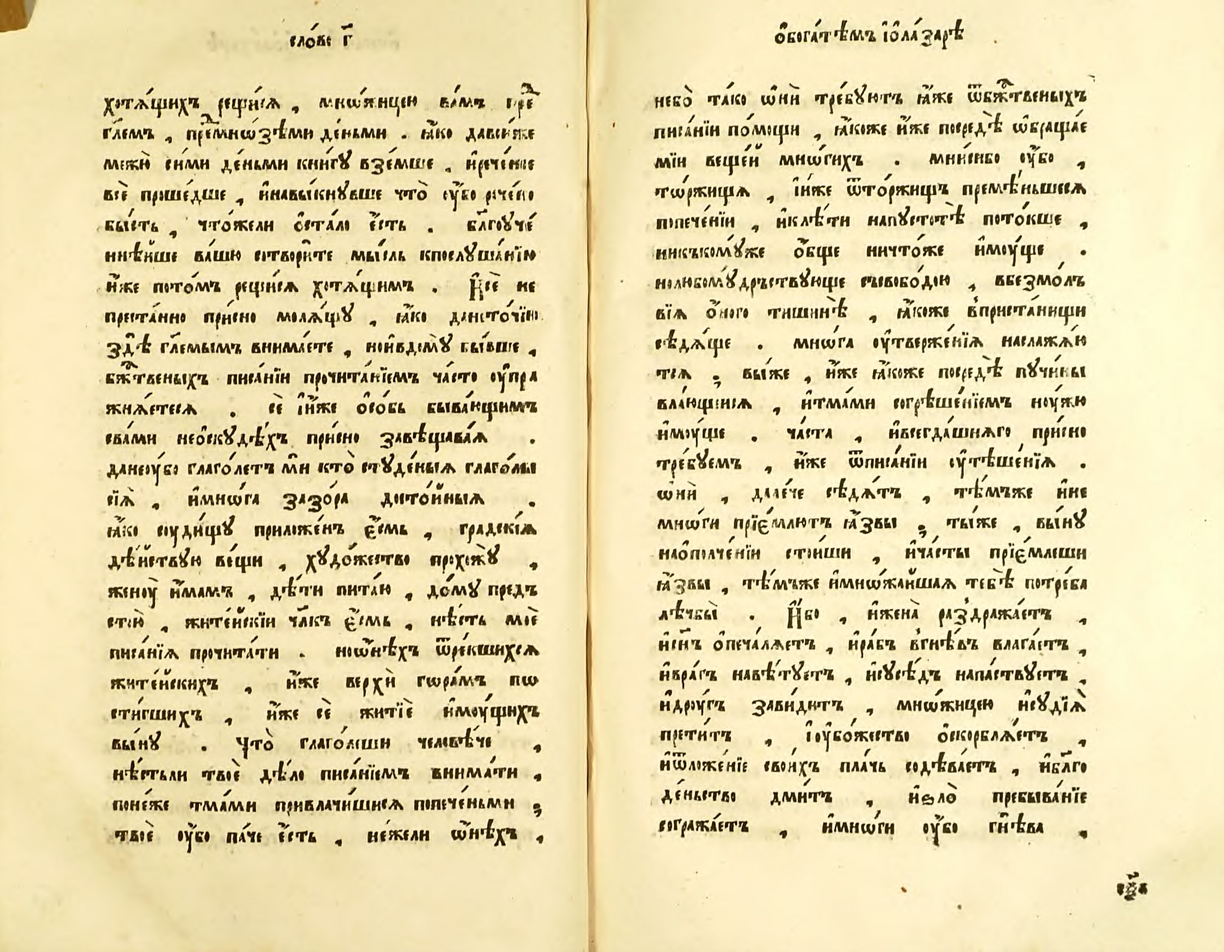 сло́во г҃
хотѧ́щихъ рещи́сѧ , мно́жицею ва́мъ пре
гл҃емъ , пре́мнѡзѣми де́ньми . ꙗ҆́ко да
межю̀ си́ми де́ньми кни́гꙋ взе́мше , и҆рече́ное
всѐ проше́дше , и҆навы́кнꙋвше что̀ ᲂу҆́бо рече́но
бы́сть , что́жели ѻ҆ста́ло є҆́сть . бл҃гоуче́
ннѣ́йше ва́шю сотвори́те мы́сль кпослꙋша́нїю
и҆́же пото́мъ рещи́сѧ хотѧ́щимъ . И҆се́ не
преста́нно при́сно молѧ́щꙋ , ꙗ҆́ко дането́чїю
здѣ̀ гл҃емымъ внима́ете , ноивдомꙋ̀ бы́вше ,
бж҃твеныхъ писа́нїи прочита́нїемъ ча́сто ᲂу҆пра
жнѧ́етесѧ . се́ и҆́же ѻ҆со́бь быва́ющимъ
сва́ми неѻ҆скꙋдѣ́хъ при́сно завѣщава́ѧ .
данеᲂу҆́бо глаго́летъ мѝ кто̀ стꙋде́ныѧ глаго́лы
сїѧ̀ , и҆мнѡ́га зазо́ра досто́йныѧ .
ꙗ҆́ко сꙋди́щꙋ приложе́нъ є҆́смь , гра́дскїѧ
дѣ́йствꙋю ве́щи , хꙋдо́жество прохожꙋ̀ ,
женоу҆̀ и҆́мамъ , дѣ́ти пита́ю , до́мꙋ предъ
стою̀ , жите́йскїи чл҃къ є҆́смь , нѣ́сть моѐ
писа́нїѧ прочита́ти . ноѡ҆нѣ́хъ ѿре́кшихсѧ
жите́йскихъ , и҆́же верхѝ гѡра́мъ пѡ
сти́гшихъ , и҆́же сѐ житїѐ и҆мꙋ́щихъ
вы́нꙋ . Что̀ глаго́леши человѣ́че ,
нѣ́стьли твоѐ дѣ́ло писа́нїемъ внима́ти ,
поне́же тма́ми привлачи́шисѧ попече́ньми ;
твоѐ ᲂу҆́бо па́че є҆́сть , не́жели ѡ҆нѣ́хъ ,
ѻ҆бога́тѣмъ і҆ѻла́зарѣ
небо̀ та́ко ѡ҆нѝ тре́бꙋютъ ꙗ҆́же ѿбж҃твеныхъ
писа́нїи по́мощи , ꙗ҆́коже и҆́же посредѣ̀ ѡ҆браща́е
мїи веще́й мнѡ́гихъ . мни́сибо ᲂу҆́бо ,
тѡржи́щѧ , і҆и҆́же ѿто́ржищъ премѣ́ньшесѧ
попече́нїи , и҆клѣ́ти напꙋстотѣ̀ пото́кше ,
никъкомꙋ́же ѻ҆́бще ничто́же и҆мꙋ́ще .
нолюбомꙋ́дръствꙋюще съсвобо́дою , вбезмо́лъ
вїѧ ѻ҆́ного тишинѣ̀ , ꙗ҆́коже в҆приста́нищи
сѣдѧ́ще . мнѡ́га ᲂу҆твержє́нїѧ наслажа́ю
тсѧ ; вы́же , и҆́же ꙗ҆́коже посредѣ̀ пꙋчи́ны
влаю́щиисѧ , и҆тма́ми согрѣше́нїемъ нꙋ́жю
и҆мꙋ́ще . ча́ста , и҆всегда́шнѧго при́сно
тре́бꙋемъ , и҆́же ѿписа́нїи ᲂу҆тѣше́нїѧ .
ѡ҆нѝ , дале́че сѣдѧ́тъ , тѣ́мъже и҆не
мно́ги прїе́млютъ ꙗ҆́звы ; ты́же , вы́нꙋ
наѻ҆полче́нїи стои́ши , и҆ча́сты прїе́млеши
ꙗ҆́звы , тѣ́мъже и҆мнѡжа́йшаѧ тебѣ̀ потре́ба
лѣчбы̀ . И҆́бо , и҆жена̀ раздража́етъ ,
и҆сн҃ъ ѻ҆печалѧ́етъ , и҆ра́бъ в҆гнѣ́въ влага́етъ ,
и҆вра́гъ навѣ́тꙋетъ , и҆сꙋсѣ́дъ напа́ствꙋетъ ,
и҆дрꙋ́гъ зави́дитъ , мно́жицею и҆сꙋдїѧ̀
прети́тъ , і҆ᲂу҆бо́жество ѻ҆скорблѧ́етъ ,
и҆ѿложе́нїе свои́хъ пла́чь содѣва́етъ , и҆бл҃го
де́ньство дми́тъ , и҆ѕло̀ пребыва́нїе
согража́етъ , и҆мно́ги ᲂу҆́бо гнѣ́ва ,